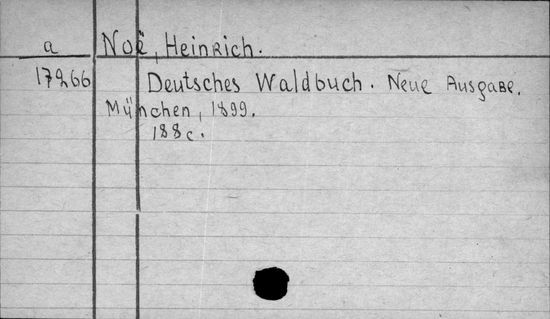 a Noë, Heinrich.
17266 Deutsches Waldbuch. Neue Ausgabe.
München, 1899.
188c.